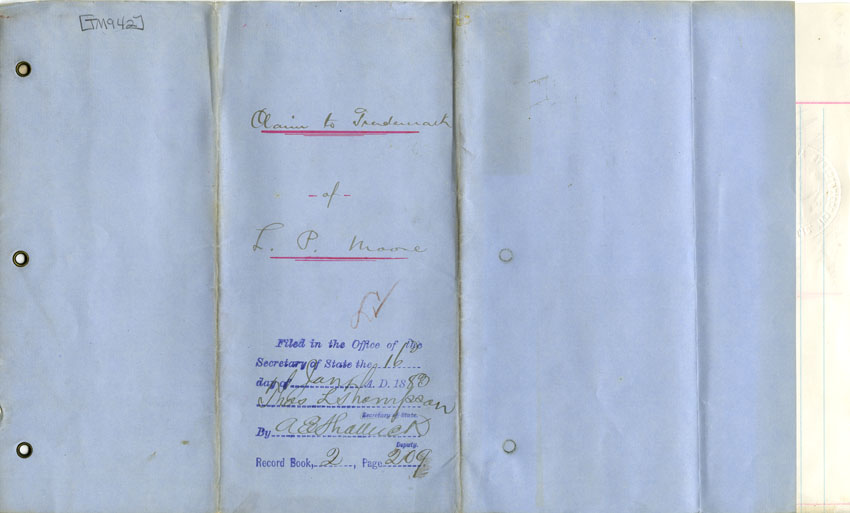 [TM942]
Claim to Trademark
- of -
L. P. Moore
Filed in the Office of the
Secretary of State the 16
day of Jan A. D. 1880
Thos L Thompson
Secretary of State.
By A E Shattuck
Deputy.
Record Book, 2, Page 209.